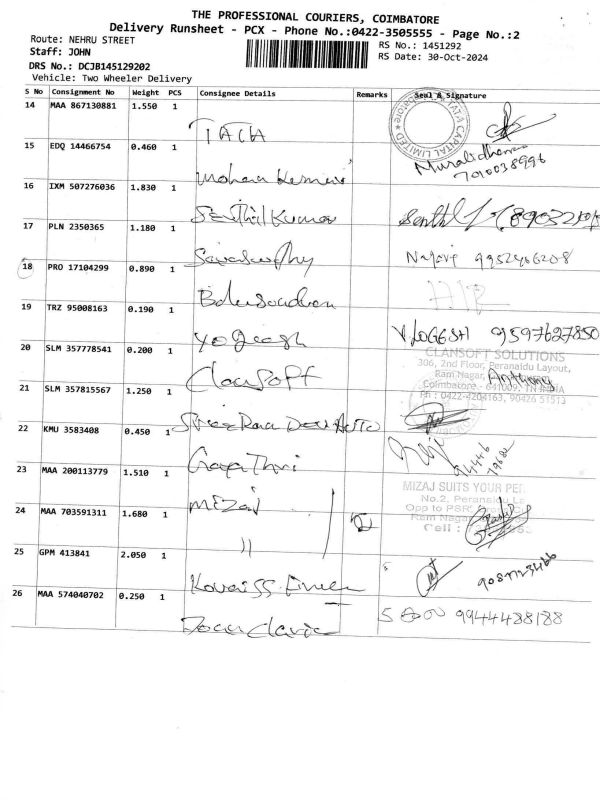 THE PROFESSIONAL COURIERS, COIMBATORE
Delivery Runsheet - PCX - Phone No.:0422-3505555 - Page No.:2
Route: NEHRU STREET
RS No.: 1451292
Staff: JOHN
RS Date: 30-Oct-2024
DRS No.: DCJB145129202
Vehicle: Two Wheeler Delivery
S No Consignment No Weight PCS Consignee Details Remarks Seal & Signature
14 MAA 867130881 1.550 1
TATA CAPITAL LIMITED
TATA
Muralidharan
7010038996
15 EDQ 14466754 0.460 1
Mohana Kumari
16 IXM 507276036 1.830 1
Senthil Kumar
17 PLN 2350365 1.180 1
9952406208
18 PRO 17104299 0.890 1
19 TRZ 95008163 0.190 1
Yogeesh
V.LOGGESH 9597627850
20 SLM 357778541 0.200 1
Clansoft
CLANSOFT SOLUTIONS
306, 2nd Floor, Peranaidu Layout,
Ram Nagar,
Coimbatore - 641009. TN INDIA
Ph : 0422-4204163, 90426 51513
21 SLM 357815567 1.250 1
22 KMU 3583408 0.450 1
Gayathri
23 MAA 200113779 1.510 1
MIZAJ
MIZAJ SUITS YOUR
No.2, Peranaidu
Opp to
Ram Nagar
Cell :
24 MAA 703591311 1.680 1
"
25 GPM 413841 2.050 1
26 MAA 574040702 0.250 1
9944488188